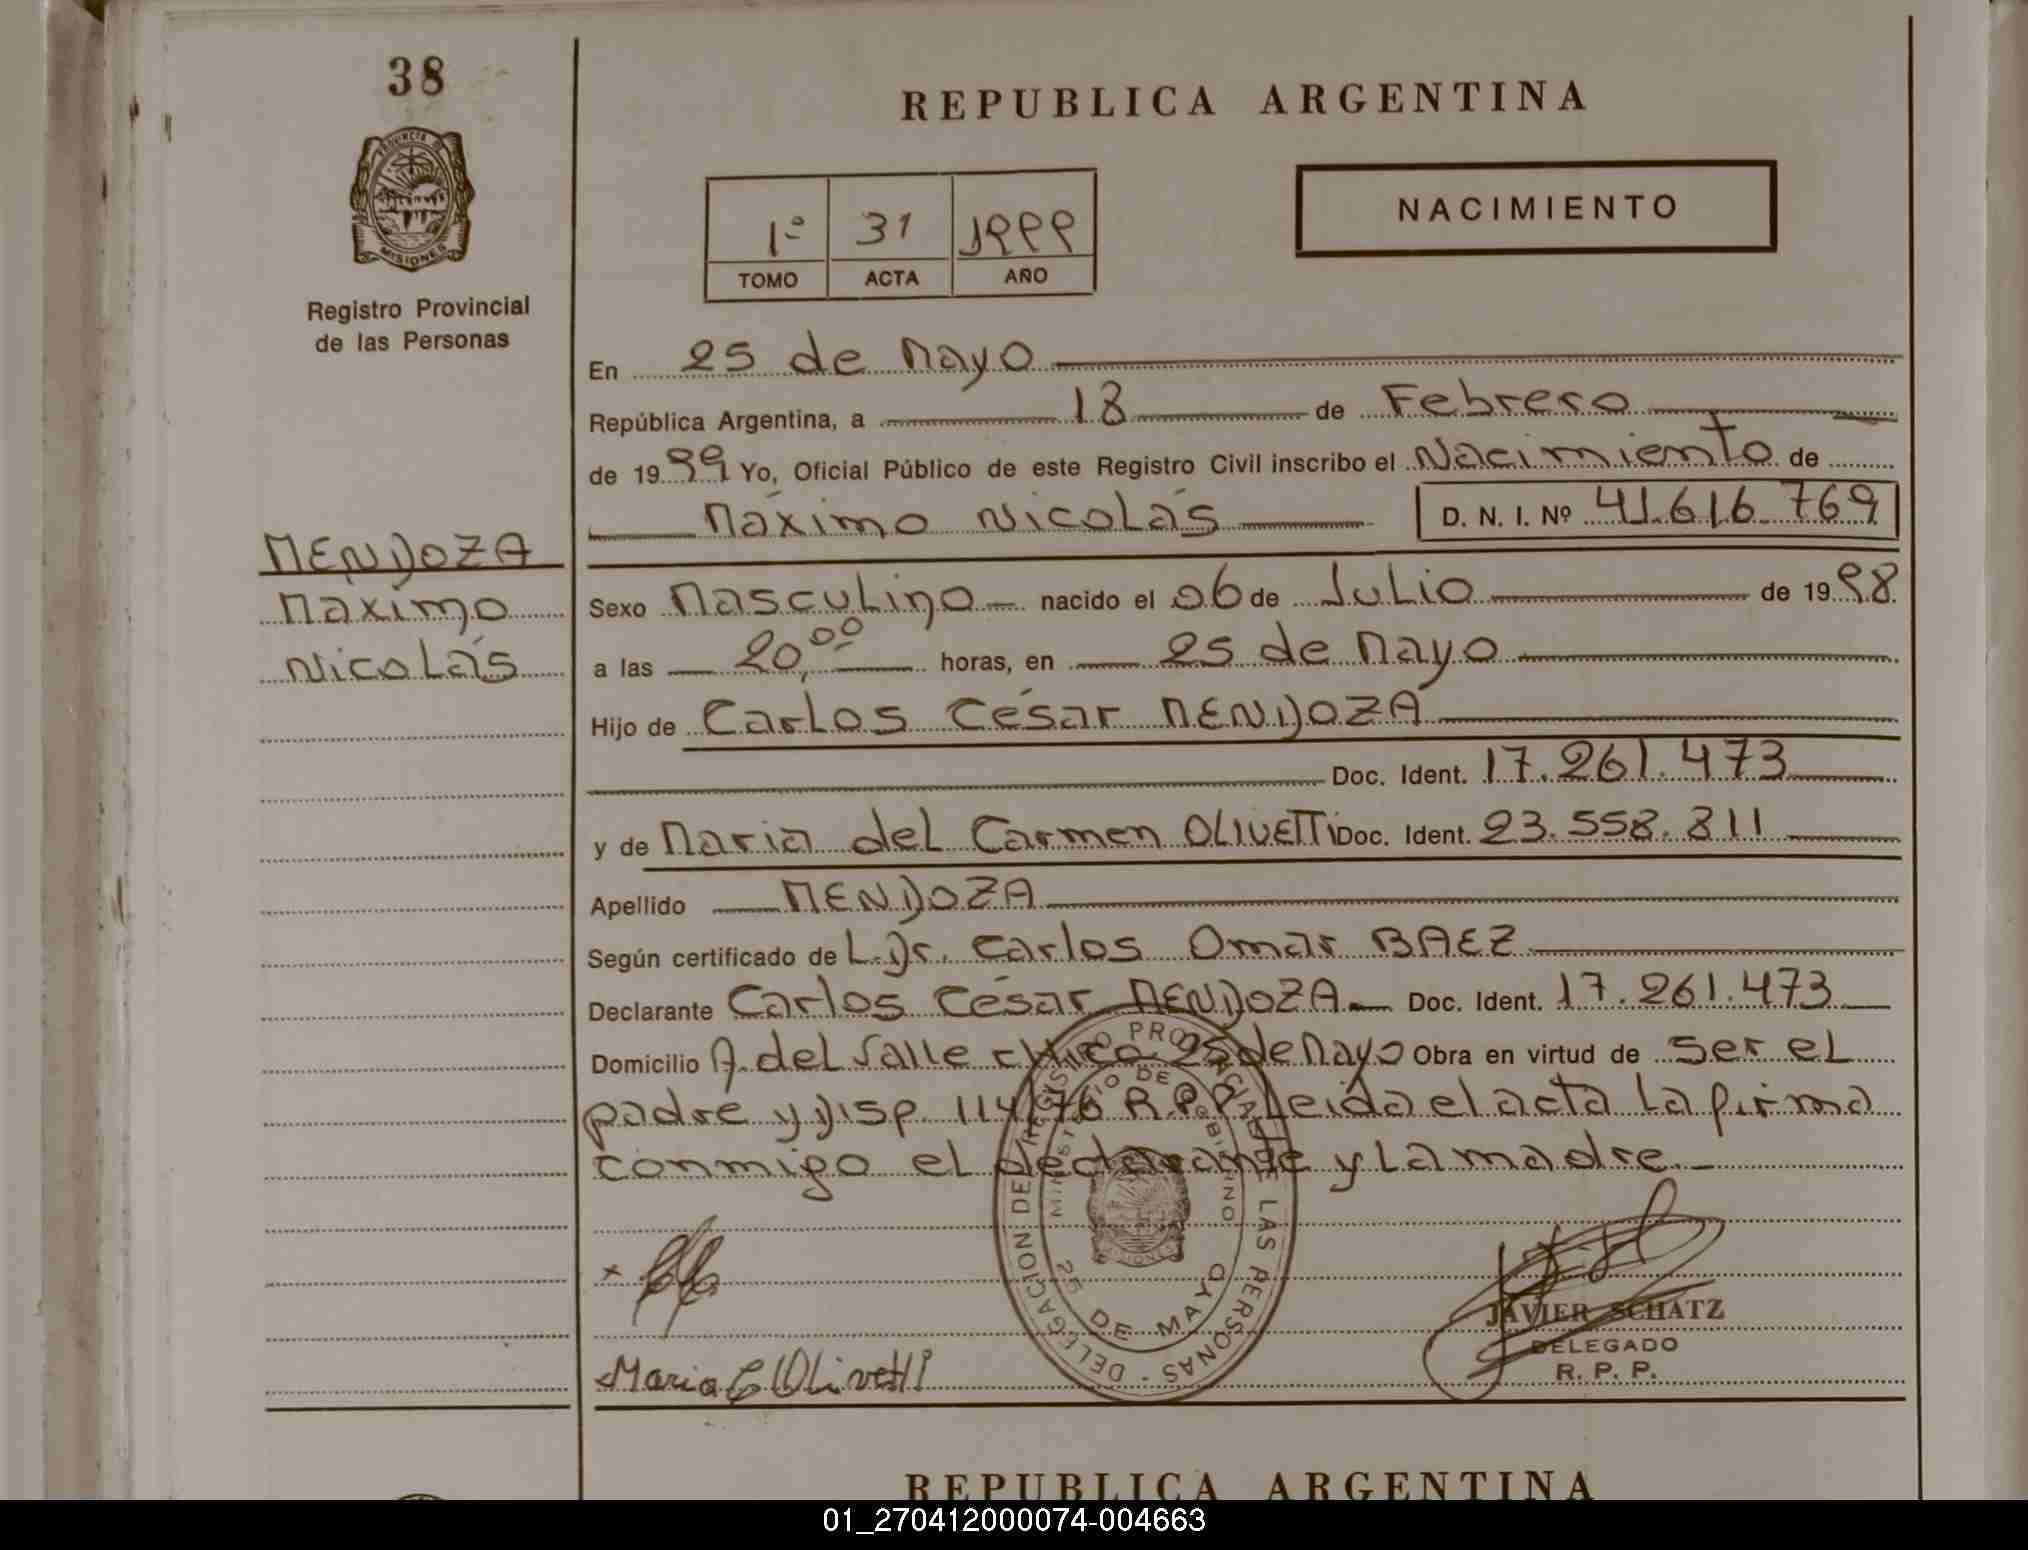 38
PROVINCIA DE
MISIONES
Registro Provincial
de las Personas
MENDOZA
Máximo
Nicolás
REPUBLICA ARGENTINA
1º 31 1999
TOMO ACTA AÑO
NACIMIENTO
En 25 de Mayo
República Argentina, a 18 de Febrero
de 1999 Yo, Oficial Público de este Registro Civil inscribo el Nacimiento de
Máximo Nicolás D. N. I. Nº 41.616.769
Sexo Masculino nacido el 06 de Julio de 1998
a las 20,00 horas, en 25 de Mayo
Hijo de Carlos César MENDOZA
Doc. Ident. 17.261.473
y de Maria del Carmen OLIVETTI Doc. Ident. 23.558.811
Apellido MENDOZA
Según certificado de L.Dr. Carlos Omar BAEZ
Declarante Carlos César MENDOZA Doc. Ident. 17.261.473
Domicilio A. del Valle chico 25 de Mayo Obra en virtud de ser el
padre y Disp. 114/76 R.P.P. Leida el acta la firma
conmigo el declarante y la madre.-
DELEGACION DE REGISTRO PROVINCIAL DE LAS PERSONAS -
MINISTERIO DE GOBIERNO
25 DE MAYO
MISIONES
x
Maria C Olivetti
JAVIER SCHATZ
DELEGADO
R. P. P.
REPUBLICA ARGENTINA
01_270412000074-004663